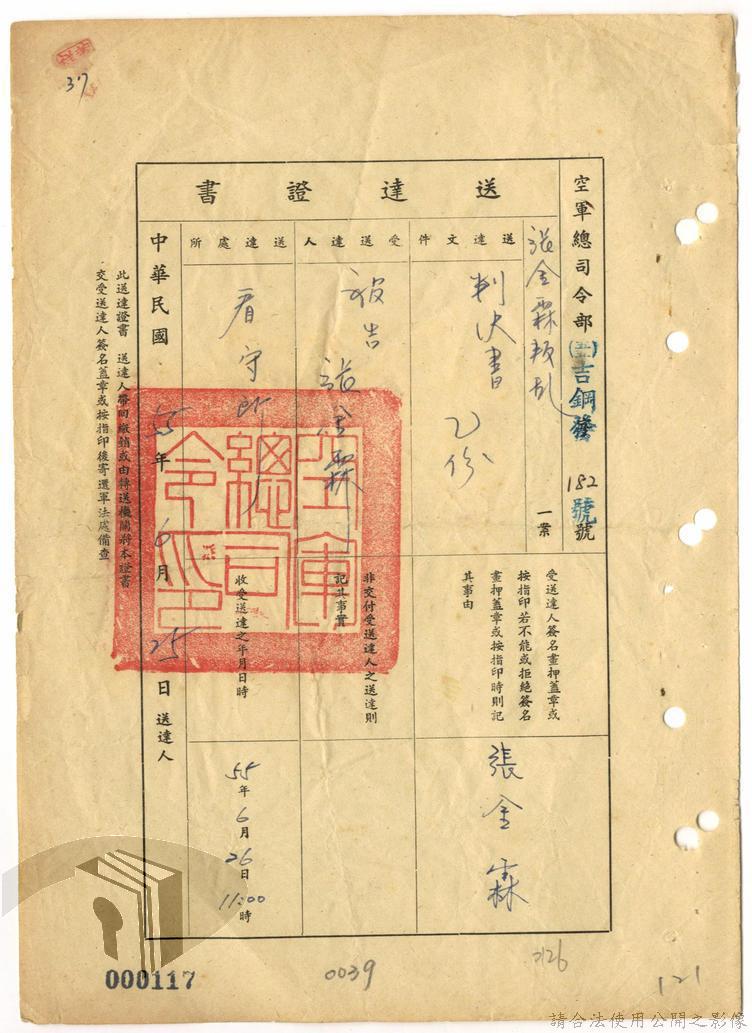 37
送達證書
空軍總司令部(五五)吉鋼發182號號
張金霖叛乱一案
送達文件
判決書乙份
受送達人
被告張金霖
送達處所
看守所
受送達人簽名畫押蓋章或
按指印若不能或拒絕簽名
畫押蓋章或按指印時則記
其事由
張金霖
非交付受送達人之送達則
記其事實
收受送達之年月日時
55年6月26日11:00時
中華民國55年6月25日送達人
此送達證書 送達人帶回繳銷或由轉送機關將本證書
交受送達人簽名蓋章或按指印後寄還軍法處備查
空軍總司令印
000117
0039
3126
121
請合法使用公開之影像